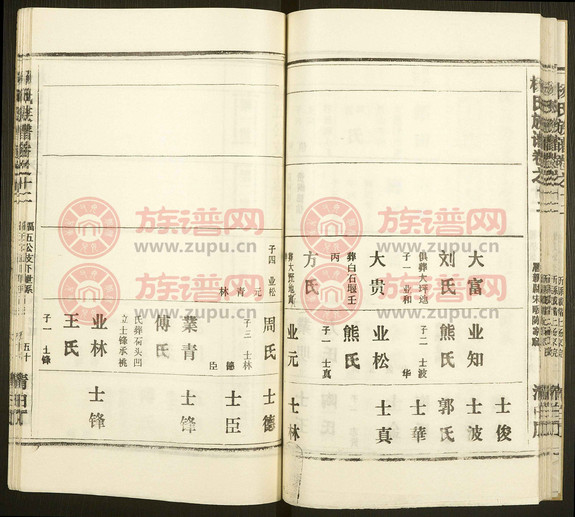 杨氏族谱卷之十二
大富
刘氏
俱葬大坪地
子一 业和
大贵
葬白石堰壬
丙
方氏
葬大坪地真
子四 业松
元 青
林
业知
熊氏
子二 士波
华
业松
熊氏
子一 士真
业元
周氏
子三 士林
德
臣
業青
傅氏
氏葬石头凹
立士锋承桃
业林
王氏
子一 士锋
士俊
士波
郭氏
士華
士真
士林
士德
士臣
士锋
士锋
福五公支下世系
五十
族谱网
www.zupu.cn
族谱网
www.zupu.cn
族谱网
www.zupu.cn
族谱网
www.zupu.cn